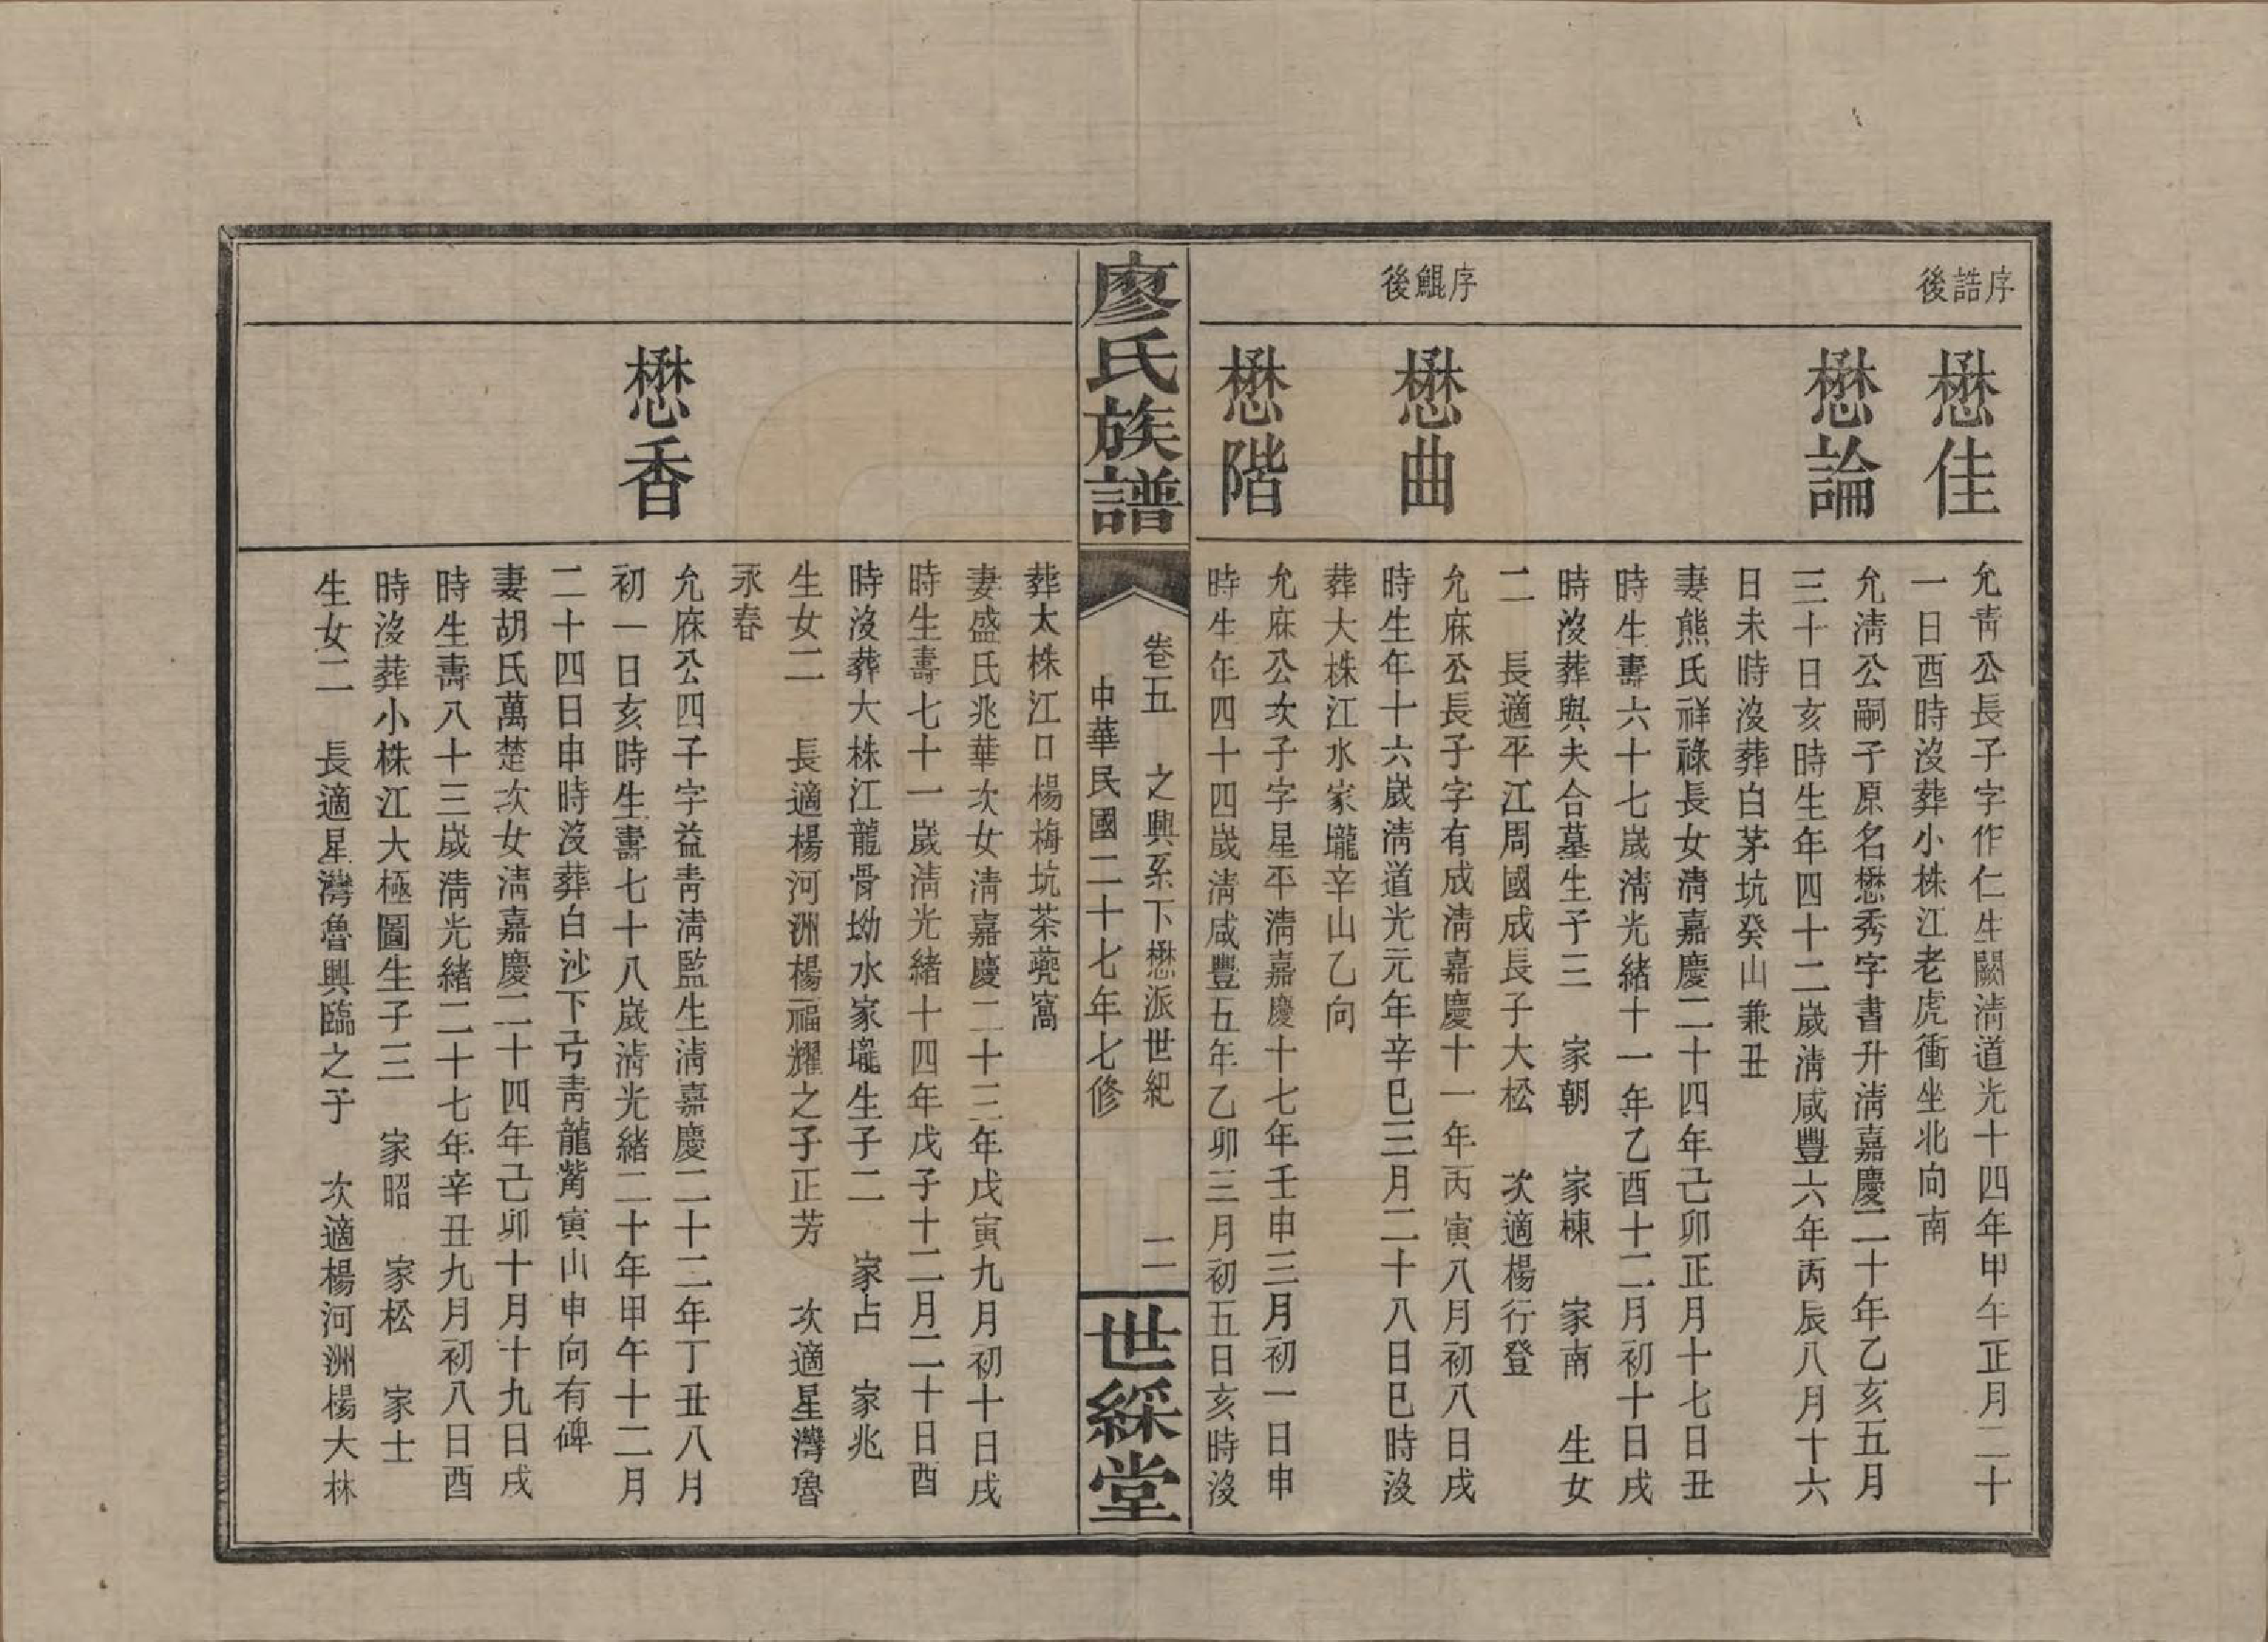 序誥後
懋佳
允靑公長子字作仁生闕淸道光十四年甲午正月二十
一日酉時沒葬小株江老虎衝坐北向南
懋論
允淸公嗣子原名懋秀字書升淸嘉慶二十年乙亥五月
三十日亥時生年四十二歲淸咸豐六年丙辰八月十六
日未時沒葬白茅坑癸山兼丑
妻熊氏祥祿長女淸嘉慶二十四年己卯正月十七日丑
時生壽六十七歲淸光緒十一年乙酉十二月初十日戌
時沒葬與夫合墓生子三　家朝　家棟　家南　生女
二　長適平江周國成長子大松　次適楊行登
序鯤後
懋曲
允庥公長子字有成淸嘉慶十一年丙寅八月初八日戌
時生年十六歲淸道光元年辛巳三月二十八日巳時沒
葬大株江水家壠辛山乙向
懋階
允庥公次子字星平淸嘉慶十七年壬申三月初一日申
時生年四十四歲淸咸豐五年乙卯三月初五日亥時沒
廖氏族譜
卷五　之興系下懋派世紀　二
中華民國二十七年七修
世綵堂
葬大株江口楊梅坑茶蔸窩
妻盛氏兆華次女淸嘉慶二十三年戊寅九月初十日戌
時生壽七十一歲淸光緒十四年戊子十二月二十日酉
時沒葬大株江龍骨坳水家壠生子二　家占　家兆
生女二　長適楊河洲楊福耀之子正芳　次適星灣魯
永春
懋香
允庥公四子字益靑淸監生淸嘉慶二十二年丁丑八月
初一日亥時生壽七十八歲淸光緒二十年甲午十二月
二十四日申時沒葬白沙下弓靑龍觜寅山申向有碑
妻胡氏萬楚次女淸嘉慶二十四年己卯十月十九日戌
時生壽八十三歲淸光緒二十七年辛丑九月初八日酉
時沒葬小株江大極圖生子三　家昭　家松　家士
生女二　長適星灣魯興臨之子　次適楊河洲楊大林